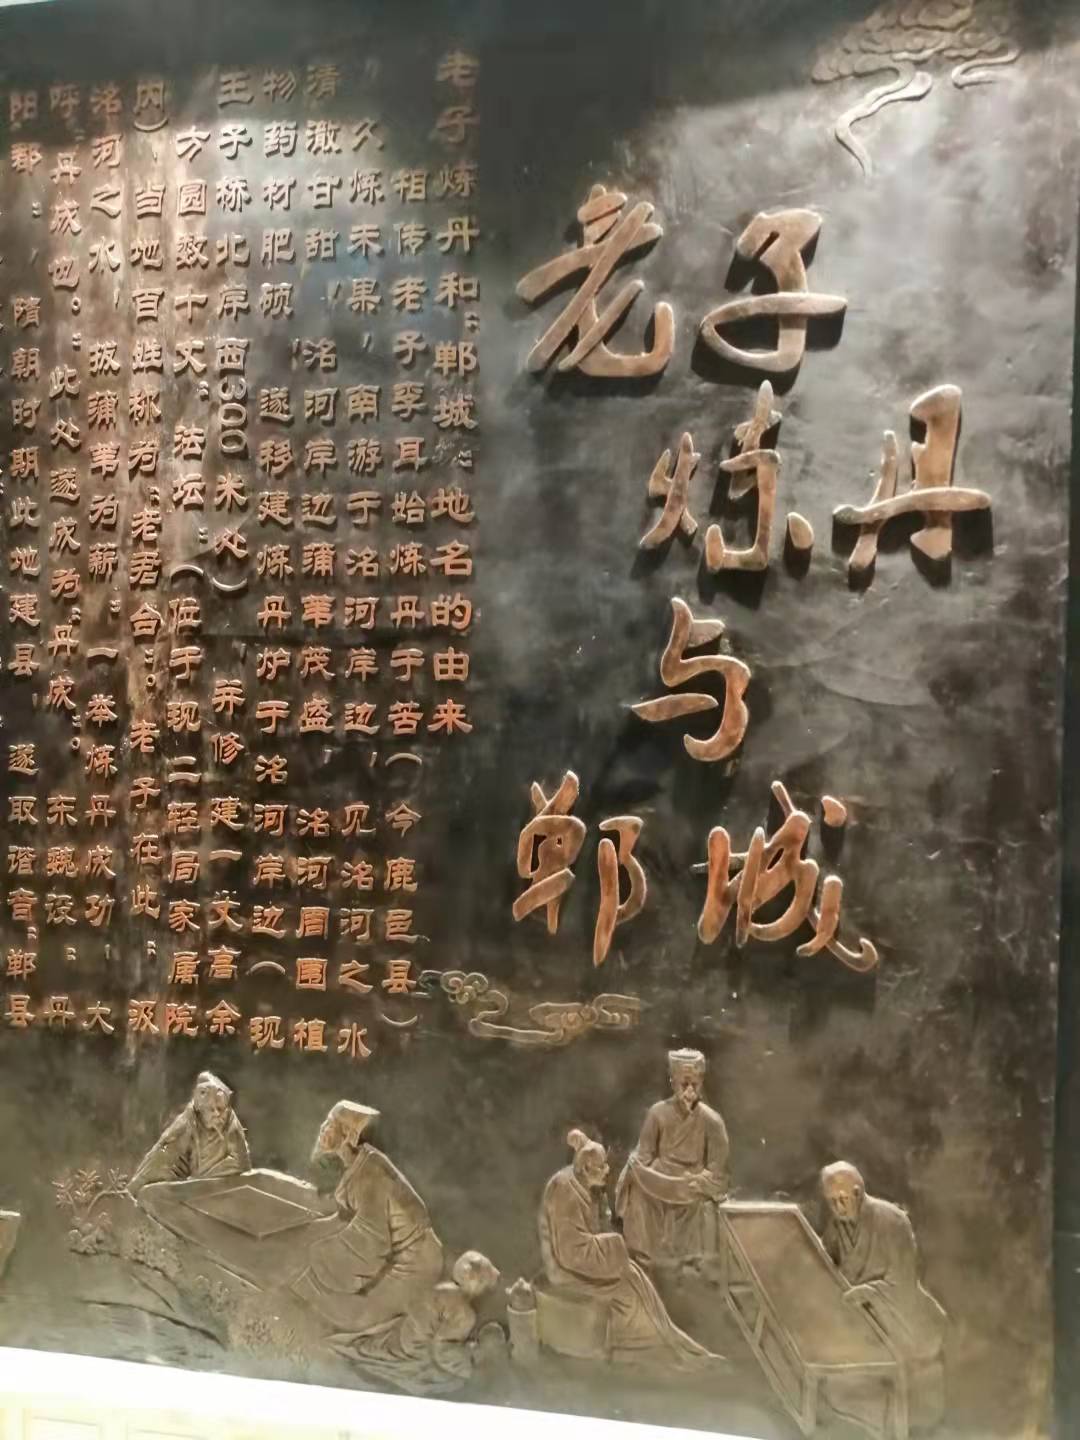 老子
炼丹
与
郸城
老子炼丹和“郸城”地名的由来
相传老子李耳始炼丹于苦(今鹿邑县)
，久炼未果，南游于洺河岸边，见洺河之水
清澈甘甜，洺河岸边蒲苇茂盛，洺河周围植
物药材肥硕，遂移建炼丹炉于洺河岸边(现
王子桥北岸西300米处)，并修建一丈高余
，方圆数十丈“法坛”(位于现二轻局家属院
内)当地百姓称为“老君台”。老子在此“汲
洺河之水，拔蒲苇为薪”一举炼丹成功，大
呼“丹成也”此处遂成为“丹成”。东魏设“丹
阳郡”，隋朝时期此地建县，遂取谐音“郸县